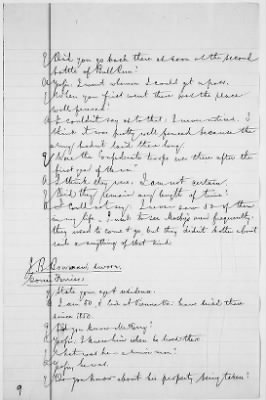 Q Did you go back there as soon as the second
battle of Bull Run?
A Yes sir. I went whenever I could get a pass.
Q When you first went there was the place
well fenced?
A I couldn't say as to that; I never noticed. I
think it was pretty well fenced because the
army hadn't laid there long.
Q Were the Confederate troops over there after the
first year of the war?
A I think they were. I am not certain.
Q Did they remain any length of time?
A I could not say. I never saw 50 of them
in my life. I used to see Mosby's men frequently.
they used to come & go but they didn't bother about
rails or anything of that kind.
J. B. Bowman, sworn.
Q State your age & residence.
A I am 50, & live at Vienna Va. have lived there
since 1850.
Q Did you know Mr.
A Yes sir, I knew him when he lived there
Q What was he - a Union man?
A Yes sir he was.
Q Do you know about his property being taken?
9